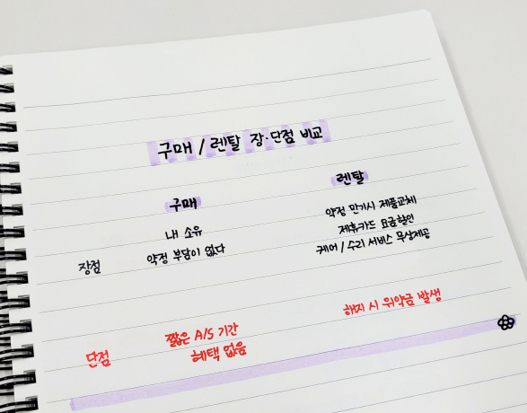 구매 / 렌탈 장·단점 비교
구매 렌탈
장점
내 소유
약정 부담이 없다
약정 만기시 제품교체
제휴카드 요금할인
케어 / 수리 서비스 무상제공
단점
짧은 A/S 기간
혜택 없음
해지 시 위약금 발생